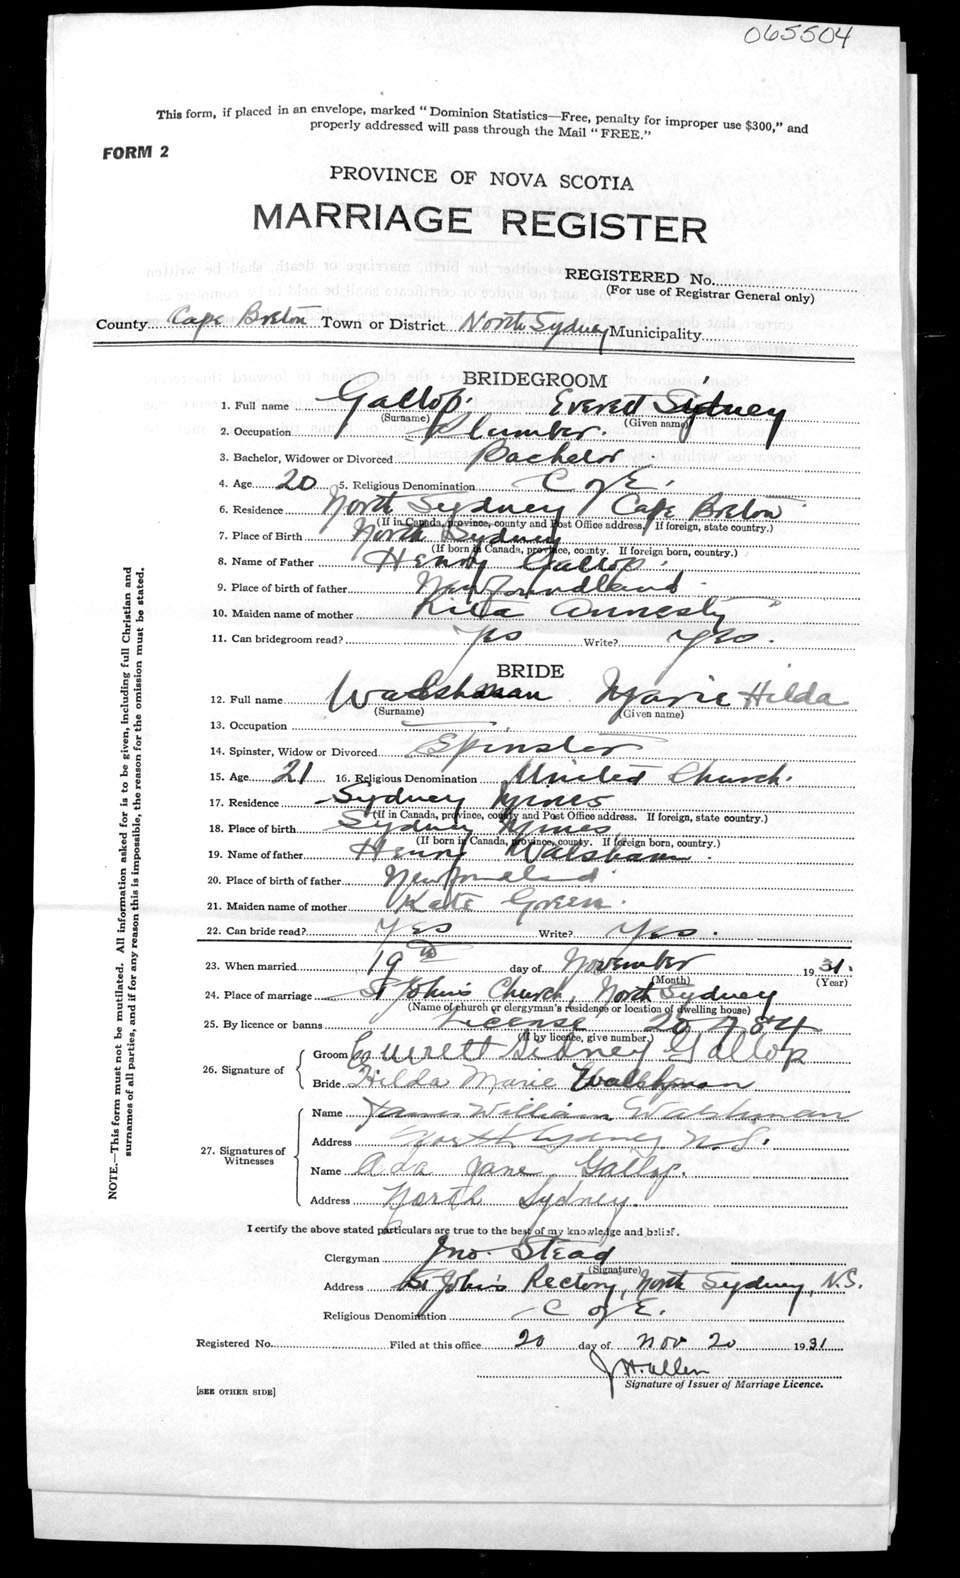 065504
This form, if placed in an envelope, marked "Dominion Statistics—Free, penalty for improper use $300," and
properly addressed will pass through the Mail "FREE."
FORM 2
PROVINCE OF NOVA SCOTIA
MARRIAGE REGISTER
REGISTERED No.
(For use of Registrar General only)
County Cape Breton Town or District North Sydney Municipality
BRIDEGROOM
1. Full name Gallop. Everett Sydney
(Surname) (Given name)
2. Occupation Plumber.
3. Bachelor, Widower or Divorced Bachelor
4. Age 20 5. Religious Denomination C of E.
6. Residence North Sydney Cape Breton
(If in Canada, province, county and Post Office address. If foreign, state country.)
7. Place of Birth North Sydney
(If born in Canada, province, county. If foreign born, country.)
8. Name of Father Henry Gallop.
9. Place of birth of father Newfoundland
10. Maiden name of mother Annesty
11. Can bridegroom read? Yes Write? Yes.
BRIDE
12. Full name Walshman Marie Hilda
(Surname) (Given name)
13. Occupation
14. Spinster, Widow or Divorced Spinster
15. Age 21 16. Religious Denomination United Church.
17. Residence Sydney Mines
(If in Canada, province, county and Post Office address. If foreign, state country.)
18. Place of birth Sydney Mines
(If born in Canada, province, county. If foreign born, country.)
19. Name of father Henry Walshman.
20. Place of birth of father Newfoundland.
21. Maiden name of mother Kate Green.
22. Can bride read? Yes Write? Yes.
23. When married 19th day of November 1931.
(Month) (Year)
24. Place of marriage St John's Church, North Sydney
(Name of church or clergyman's residence or location of dwelling house)
25. By licence or banns License 28784
(If by licence, give number.)
26. Signature of
Groom Everett Sidney Gallop
Bride Hilda Marie Walshman
27. Signatures of Witnesses
Name James William Walshman
Address North Sydney N.S.
Name Ada Jane Gallop.
Address North Sydney.
I certify the above stated particulars are true to the best of my knowledge and belief.
Clergyman Jno. Stead
(Signature)
Address St John's Rectory, North Sydney, N.S.
Religious Denomination C of E.
Registered No. Filed at this office 20 day of Nov 20 1931
J H. Allen
Signature of Issuer of Marriage Licence.
[SEE OTHER SIDE]
NOTE.—This form must not be mutilated. All information asked for is to be given, including full Christian and
surnames of all parties, and if for any reason this is impossible, the reason for the omission must be stated.